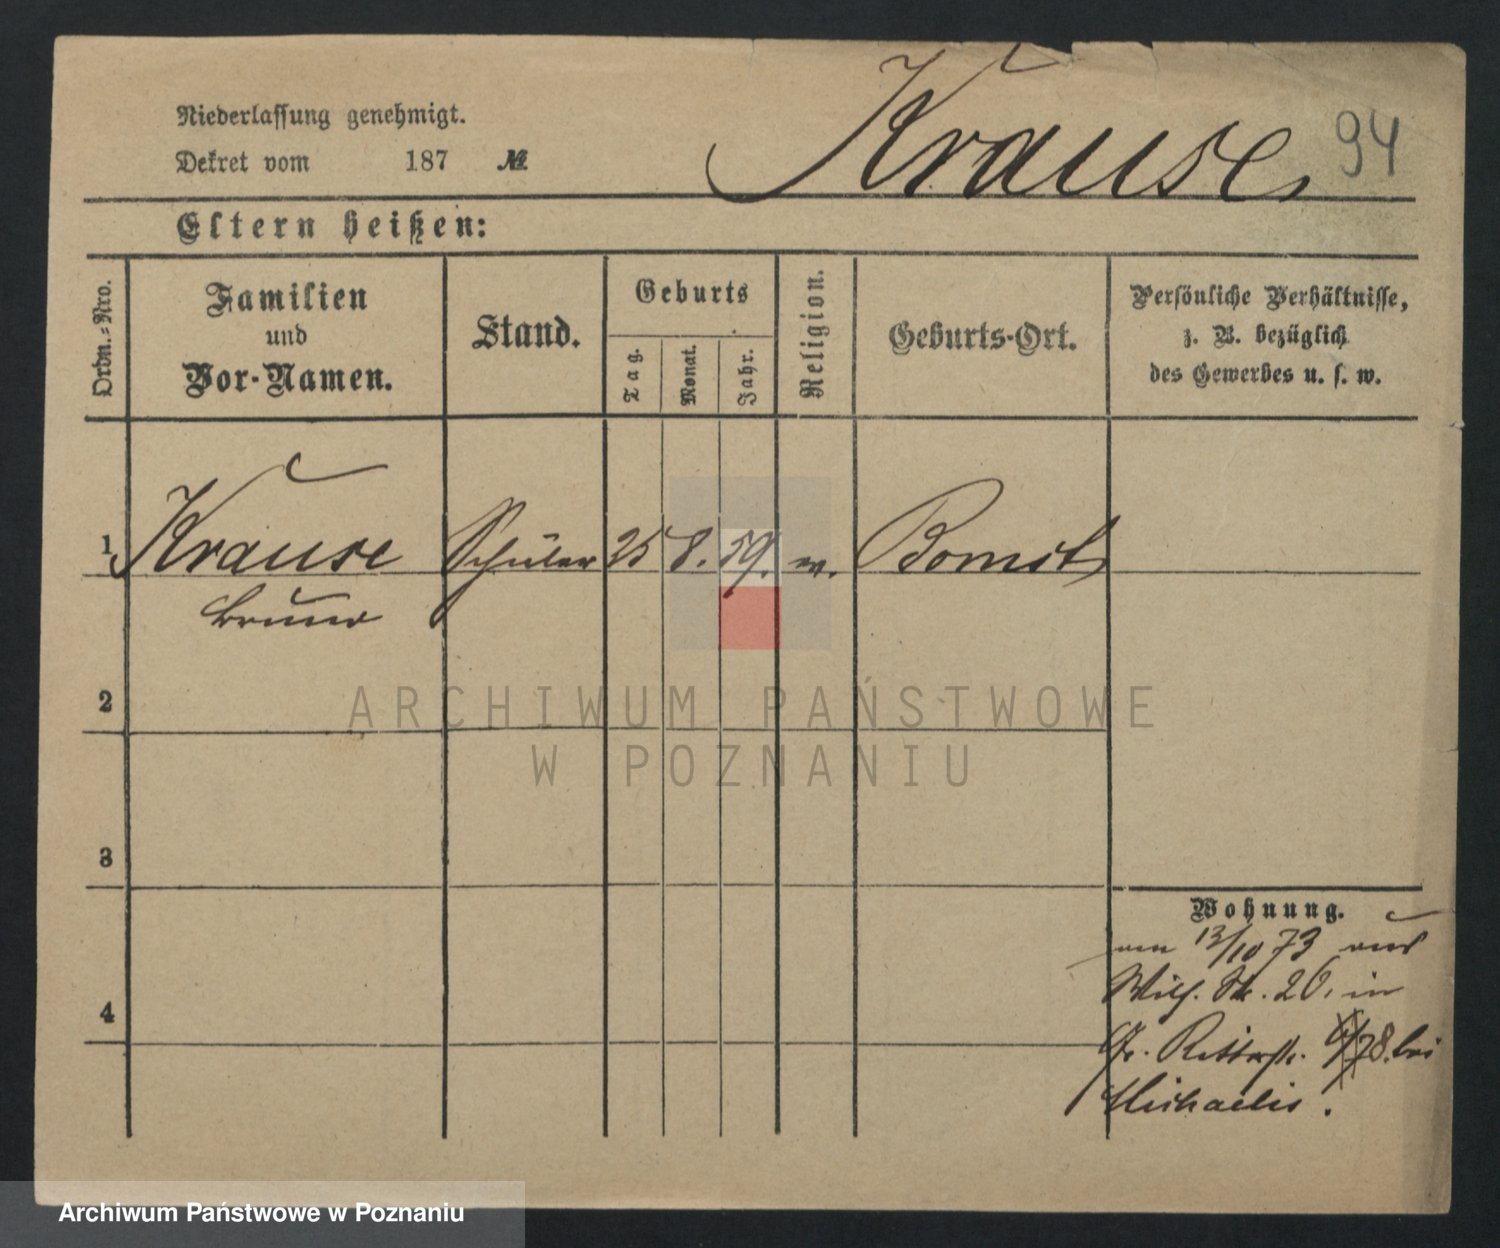 Niederlassung genehmigt.
Dekret vom 187 №
Krause
94
Eltern heißen:
Ordn.-Nro.
Familien
und
Vor-Namen.
Stand.
Geburts
Tag.
Monat.
Jahr.
Religion.
Geburts-Ort.
Persönliche Verhältnisse,
z. B. bezüglich
des Gewerbes u. s. w.
1 Krause Schüler 25 8. 59. Bomst
Bruno
2
3
4
Wohnung.
13/10 73
Wilh. Str. 20. in
Gr. Ritterstr. 8. bei
Michaelis.
ARCHIWUM PAŃSTWOWE
W POZNANIU
Archiwum Państwowe w Poznaniu